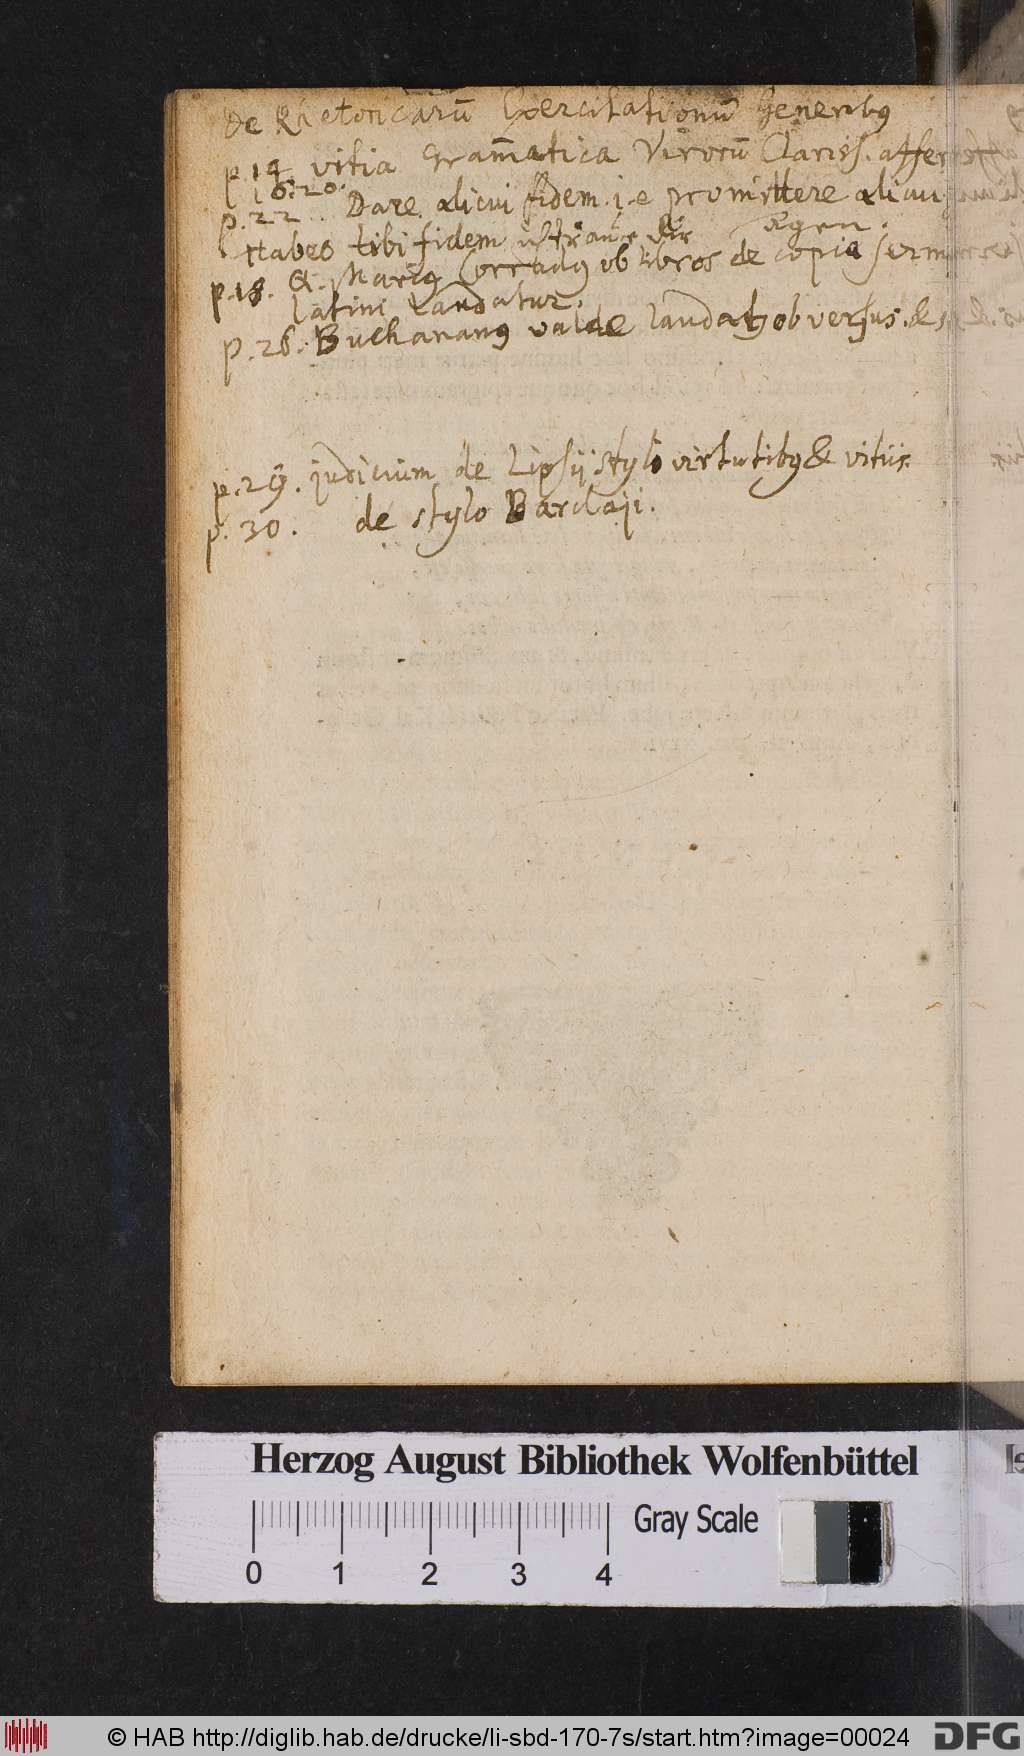 De Rhetoricarū Exercitationū Generibꝰ
p. 14. vitia Gram̄atica Virorū Clariss. affer
16. 20.
p. 22. Dare alicui fidem. i. e promittere alicui
Habeo tibi fidem ich traue dir
p. 18. Q. Mariꝰ Corradꝰ ob libros de copia serm
latini laudatur.
p. 26. Buchananꝰ valde laudatꝫ ob versus. &
p. 29. judicium de Lipsij stylo virtutibꝰ & vitiis.
p. 30. de stylo Barclaji.
Herzog August Bibliothek Wolfenbüttel
Gray Scale
0 1 2 3 4
© HAB http://diglib.hab.de/drucke/li-sbd-170-7s/start.htm?image=00024 DFG